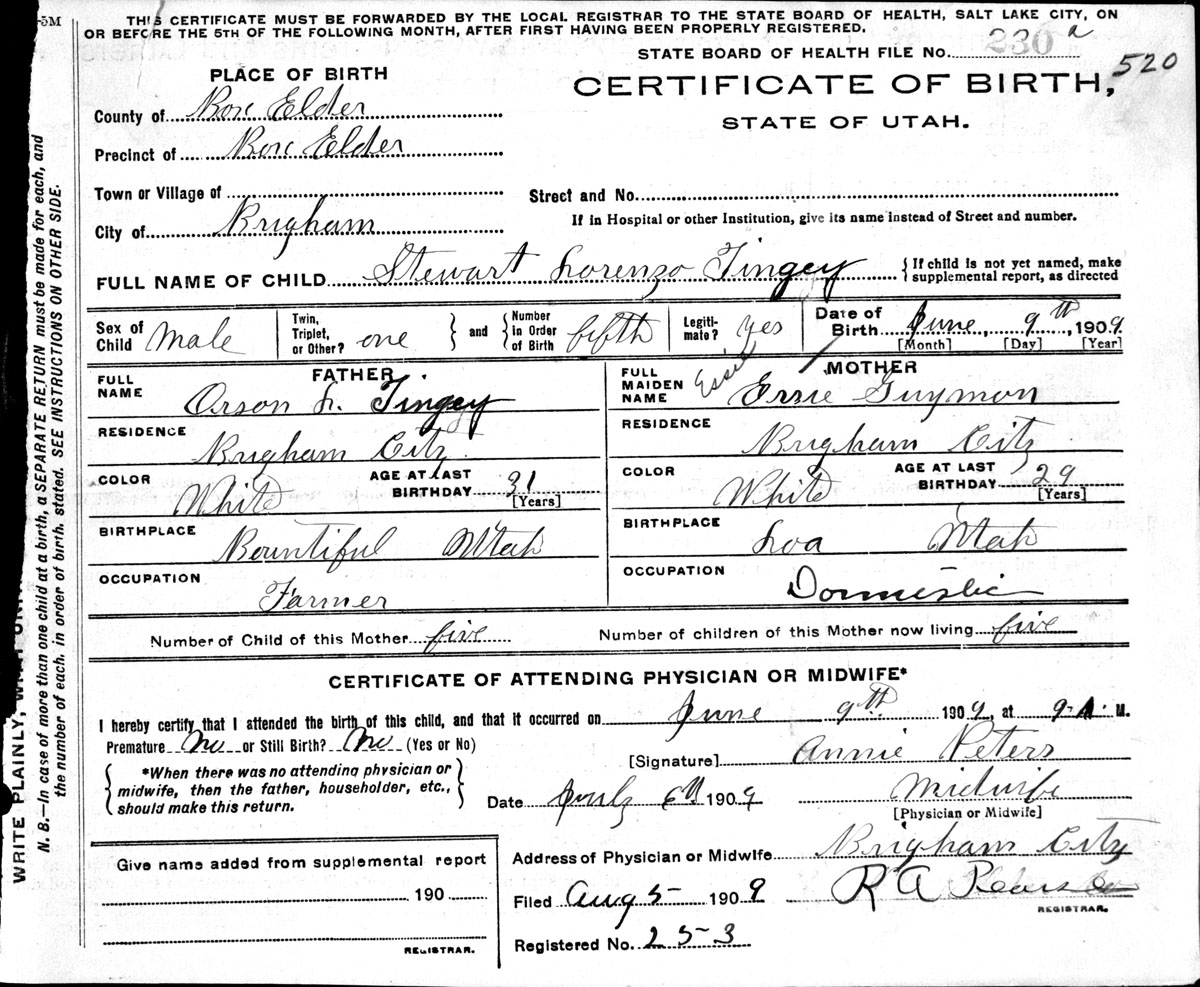 5M
THIS CERTIFICATE MUST BE FORWARDED BY THE LOCAL REGISTRAR TO THE STATE BOARD OF HEALTH, SALT LAKE CITY, ON
OR BEFORE THE 5TH OF THE FOLLOWING MONTH, AFTER FIRST HAVING BEEN PROPERLY REGISTERED.
STATE BOARD OF HEALTH FILE No. 230 a
520
PLACE OF BIRTH
CERTIFICATE OF BIRTH,
STATE OF UTAH.
County of Box Elder
Precinct of Box Elder
Town or Village of
Street and No.
City of Brigham
If in Hospital or other Institution, give its name instead of Street and number.
FULL NAME OF CHILD Stewart Lorenzo Tingey
{If child is not yet named, make
supplemental report, as directed
Sex of Child Male
Twin, Triplet, or Other? one } and { Number in Order of Birth fifth
Legiti-mate? yes
Date of Birth June 9th, 1909
[Month] [Day] [Year]
FATHER
FULL NAME Orson L. Tingey
RESIDENCE Brigham City
COLOR White
AGE AT LAST BIRTHDAY 31
[Years]
BIRTHPLACE Bountiful Utah
OCCUPATION Farmer
MOTHER
Essie
FULL MAIDEN NAME Essie Guymon
RESIDENCE Brigham City
COLOR White
AGE AT LAST BIRTHDAY 29
[Years]
BIRTHPLACE Loa Utah
OCCUPATION Domestic
Number of Child of this Mother five
Number of children of this Mother now living five
CERTIFICATE OF ATTENDING PHYSICIAN OR MIDWIFE*
I hereby certify that I attended the birth of this child, and that it occurred on June 9th 1909, at 9 A. M.
Premature No or Still Birth? No (Yes or No)
[Signature] Annie Peters
{ *When there was no attending physician or
midwife, then the father, householder, etc.,
should make this return. }
Date July 6th 1909
Midwife
[Physician or Midwife]
Address of Physician or Midwife Brigham City
Filed Aug 5 1909
R A Pearse
REGISTRAR.
Registered No. 253
Give name added from supplemental report
190
REGISTRAR.
WRITE PLAINLY,
N. B.—In case of more than one child at a birth, a SEPARATE RETURN must be made for each, and
the number of each, in order of birth, stated. SEE INSTRUCTIONS ON OTHER SIDE.